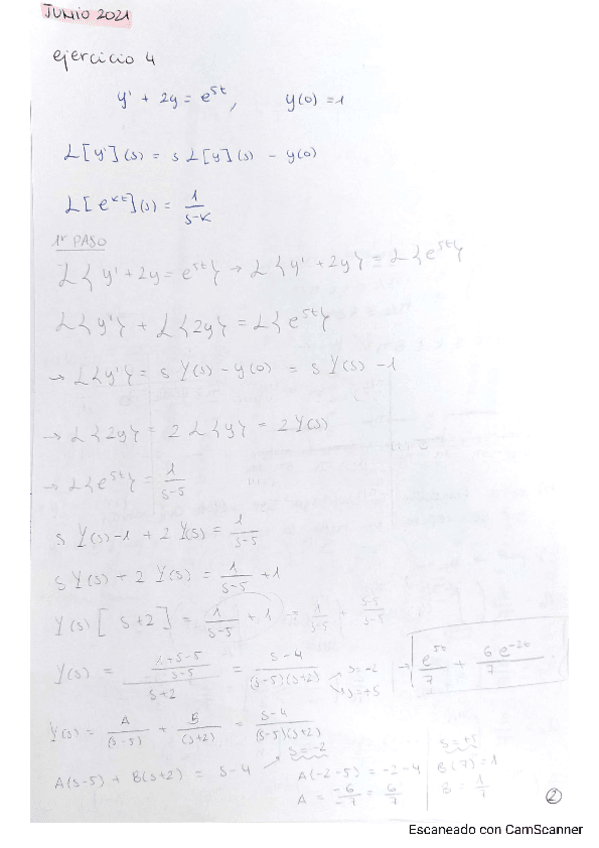 JUNIO 2021
ejercicio 4
y' + 2y = e^{5t}, y(0) = 1
L[y'](s) = s L[y](s) - y(0)
L[e^{kt}](s) = 1/(s-k)
1er PASO
L{y' + 2y = e^{5t}} → L{y' + 2y} = L{e^{5t}}
L{y'} + L{2y} = L{e^{5t}}
→ L{y'} = s Y(s) - y(0) = s Y(s) - 1
→ L{2y} = 2 L{y} = 2 Y(s)
→ L{e^{5t}} = 1/(s-5)
s Y(s) - 1 + 2 Y(s) = 1/(s-5)
s Y(s) + 2 Y(s) = 1/(s-5) + 1
Y(s) [s+2] = 1/(s-5) + 1 = 1/(s-5) + (s-5)/(s-5)
Y(s) = ((1+s-5)/(s-5))/(s+2) = (s-4)/((s-5)(s+2)) s=-2 s=+5 → e^{5t}/7 + 6e^{-2t}/7
Y(s) = A/(s-5) + B/(s+2) = (s-4)/((s-5)(s+2))
A(s-5) + B(s+2) = s-4 → s=-2
A(-2-5) = -2-4
A = -6/-7 = 6/7
s=+5
B(7) = 1
B = 1/7
2
Escaneado con CamScanner